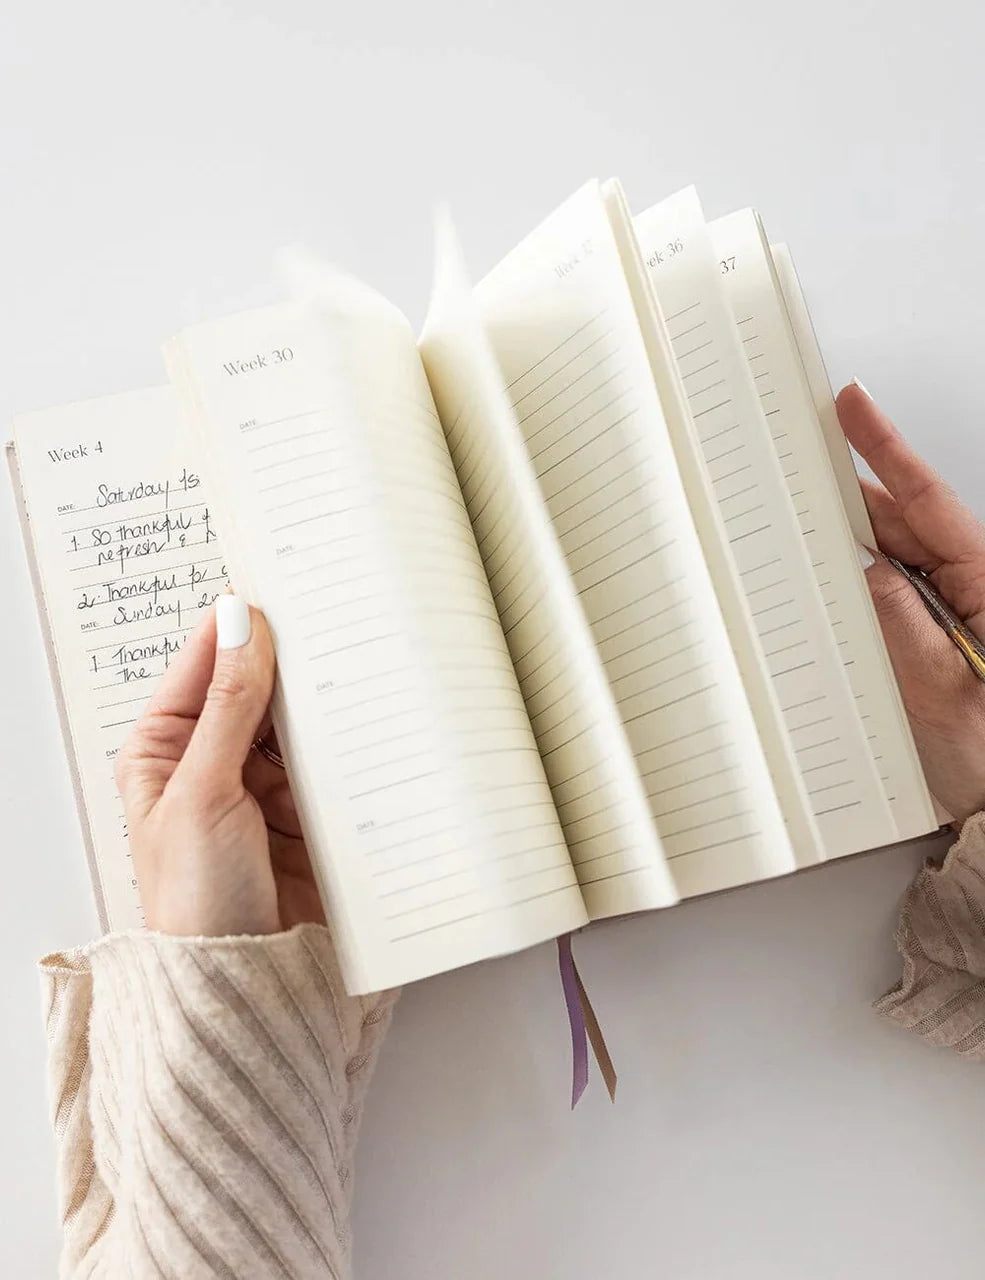 Week 4
DATE: Saturday 1s
1. So thankful
refresh &
2. Thankful for
DATE: Sunday 2n
1. Thankful
the
DATE:
D
Week 30
DATE:
DATE:
DATE:
DATE:
Week
ek 36
37